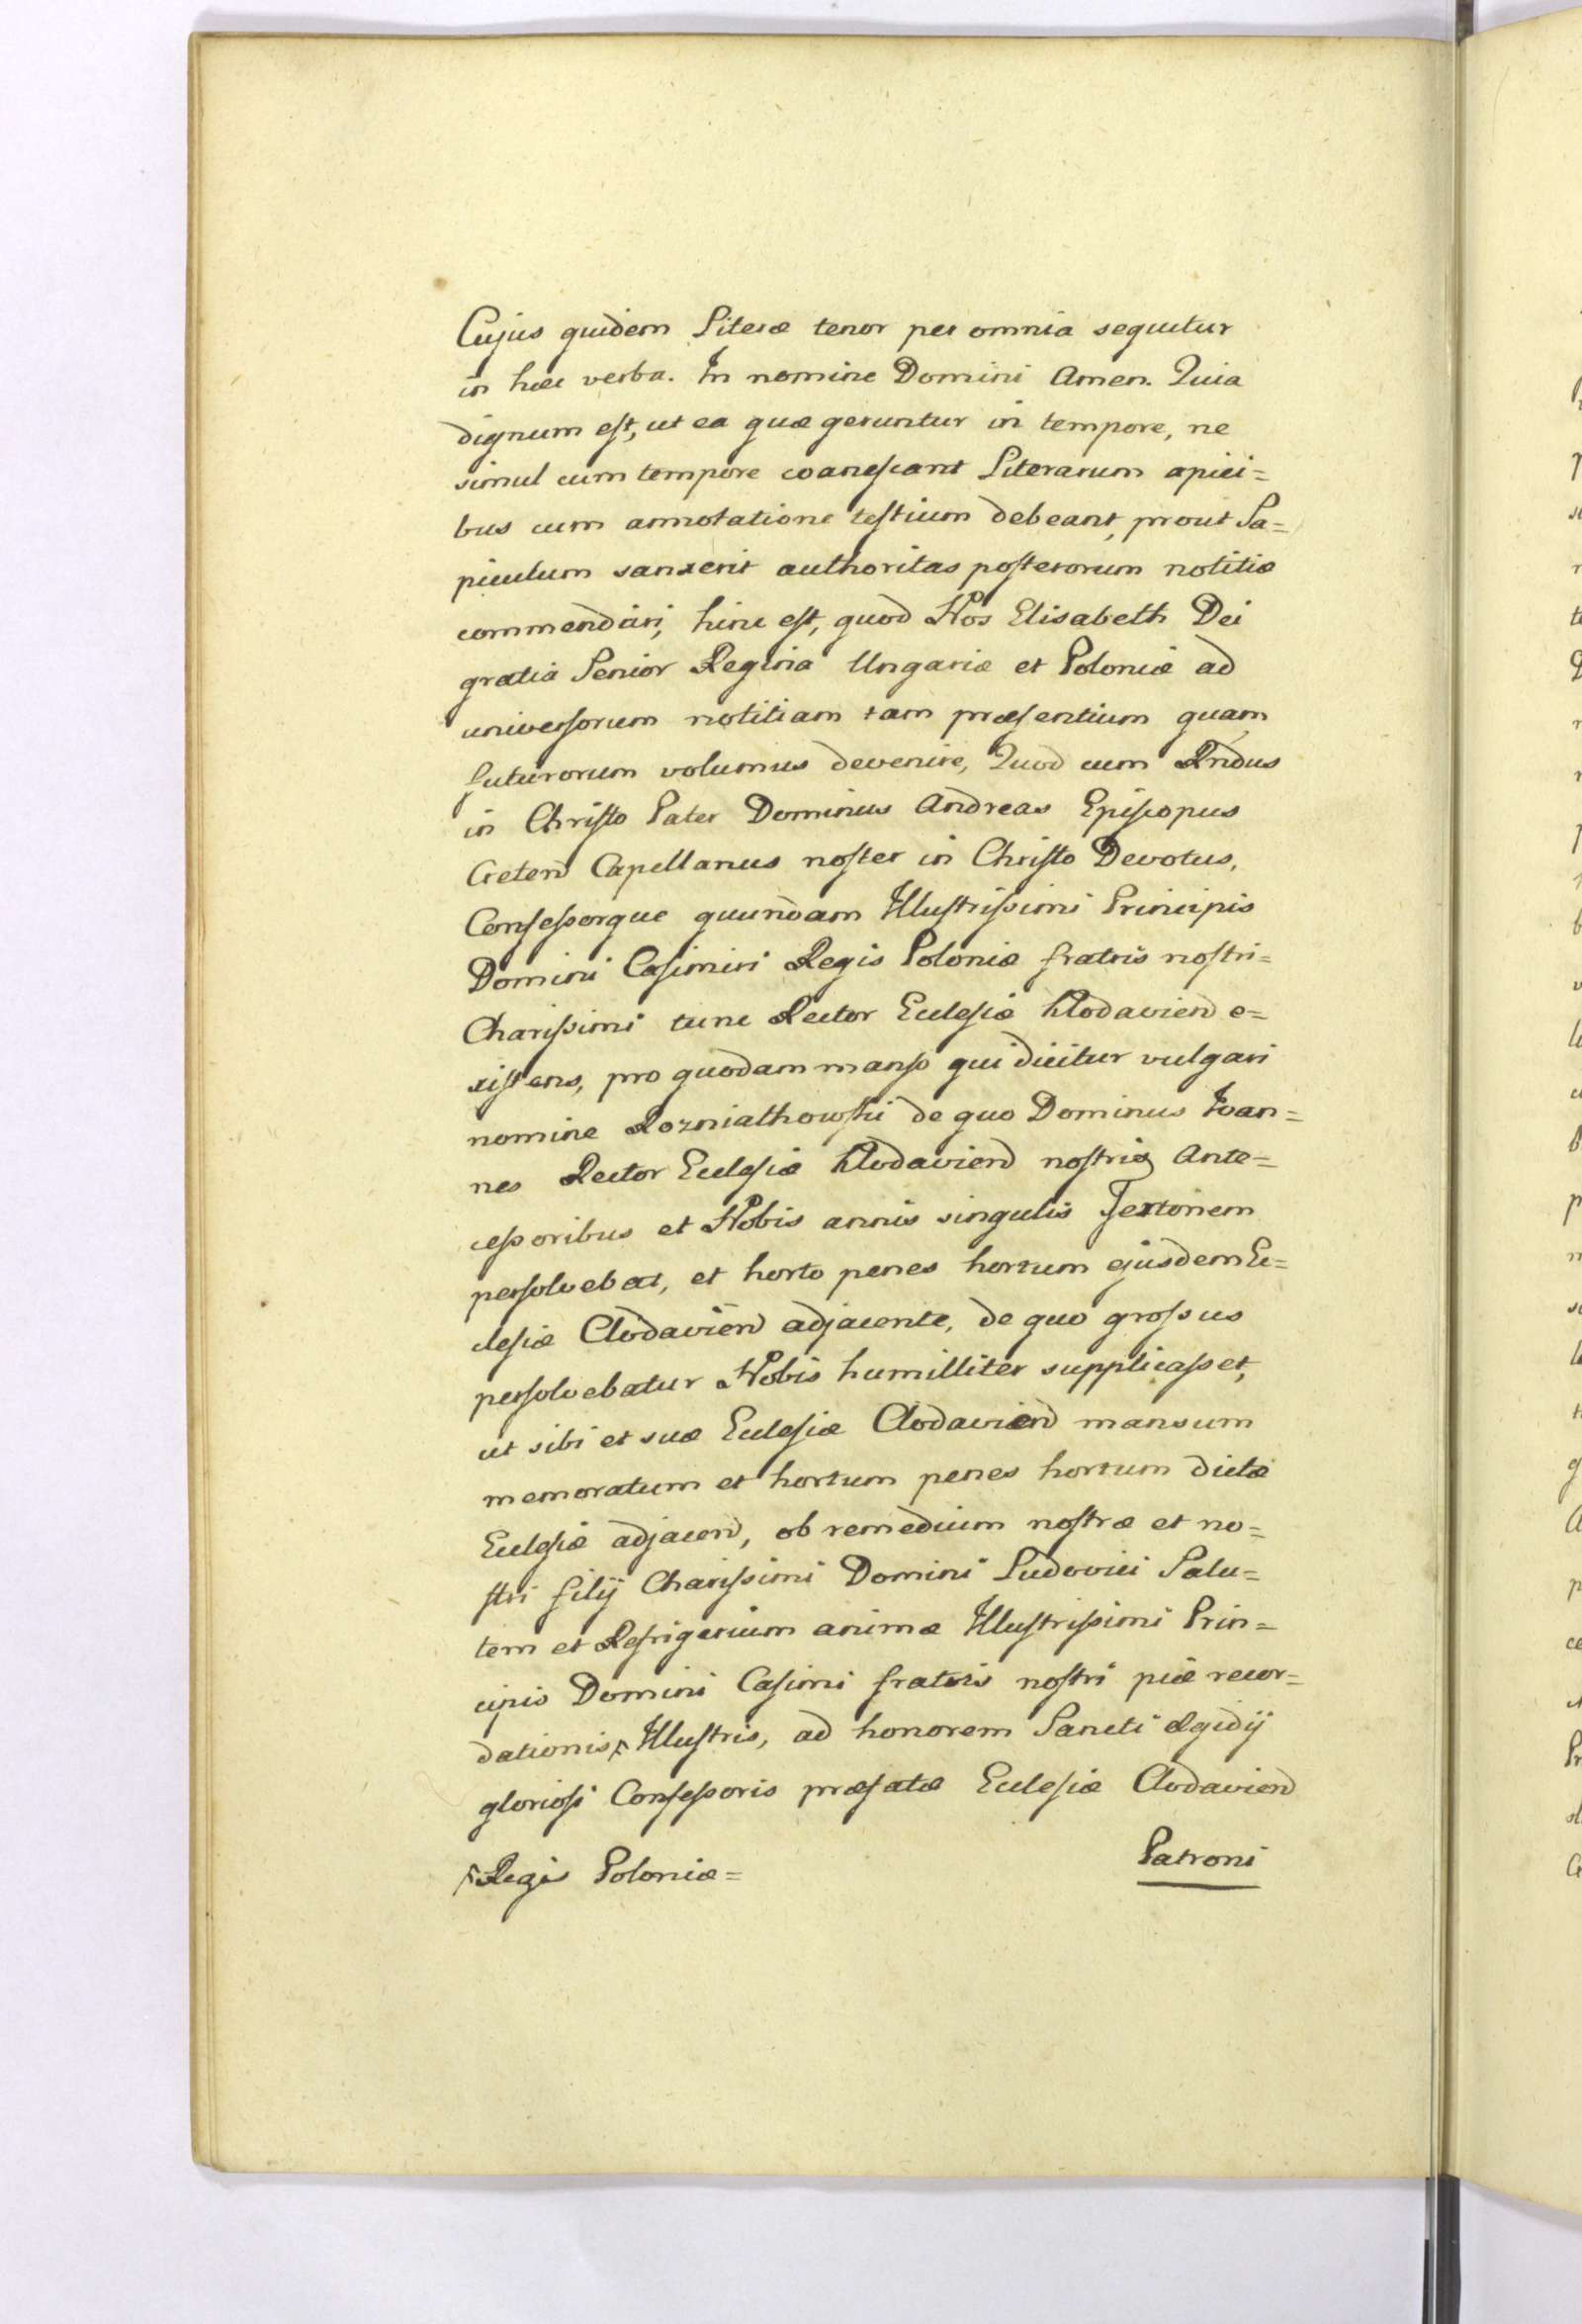 Cujus quidem Literæ tenor per omnia sequitur
in hæc verba. In nomine Domini Amen. Quia
dignum est, ut ea quæ geruntur in tempore, ne
simul cum tempore evanescant Literarum apici=
bus cum annotatione testium debeant, prout Sa=
pientum sanxerit authoritas posterorum notitiæ
commendari, hinc est, quod Nos Elisabeth Dei
gratia Senior Regina Ungariæ et Poloniæ ad
universorum notitiam tam præsentium quam
futurorum volumus devenire, Quod cum Rndus
in Christo Pater Dominus Andreas Episcopus
Ceten Capellanus noster in Christo Devotus,
Confessorque quundam Illustrissimi Principis
Domini Casimiri Regis Poloniæ fratris nostri=
Charissimi tunc Rector Ecclesiæ Klodavien e=
xistens, pro quodam manso qui dicitur vulgari
nomine Rozniathowski de quo Dominus Joan=
nes Rector Ecclesiæ Klodavien nostris Ante=
cessoribus et Nobis annis singulis Sextonem
persolvebat, et horto penes hortum ejusdem Ec=
clesiæ Clodavien adjacente, de quo grossus
persolvebatur Nobis humilliter supplicasset,
ut sibi et suæ Ecclesiæ Clodavien mansum
memoratum et hortum penes hortum dictæ
Ecclesiæ adjacen, ob remedium nostræ et no=
stri filij Charissimi Domini Ludovici Salu=
tem et Refrigerium animæ Illustrissimi Prin=
cipis Domini Casimi fratris nostri piæ recor=
dationis Illustris, ad honorem Sancti Ægidij
gloriosi Confessoris præfatæ Ecclesiæ Clodavien
Regis Poloniæ= Patroni